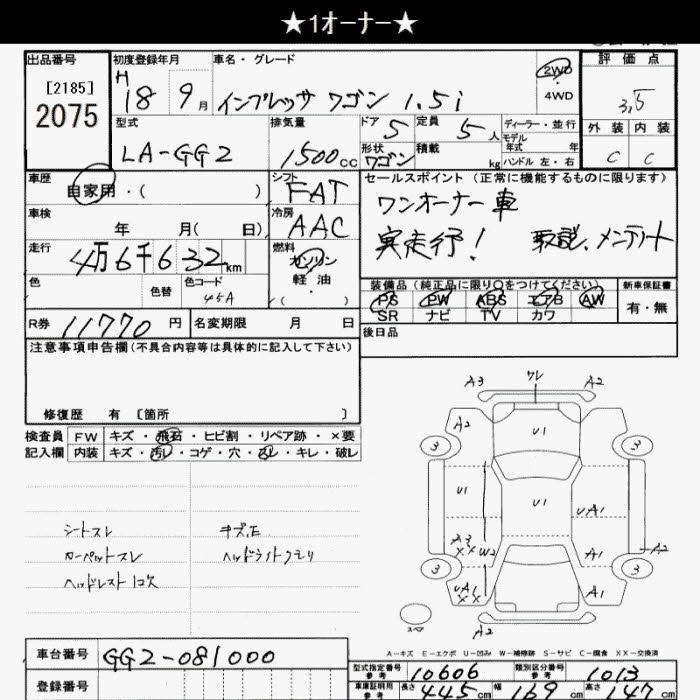 ★1オーナー★
出品番号 初度登録年月 車名・グレード 評価点
[2185] H 18 9月 インプレッサ ワゴン 1.5i 2WD 3.5
2075 4WD
型式 排気量 ドア 5 定員 5人 ディーラー・並行 外装 内装
モデル年式 年
LA-GG2 1500cc 形状 ワゴン 積載 kg ハンドル 左・右 C C
車歴 シフト セールスポイント (正常に機能するものに限ります)
自家用・( ) FAT ワンオーナー車
車検 冷房
年 月( 日) AAC 実走行! 取説、メンテノート
走行 燃料
4万6千632km ガソリン
色 色替 色コード 軽・油 装備品 (純正品に限り○をつけてください) 新車保証書
45A ( ) PS PW ABS エアB AW 有・無
SR ナビ TV カワ
R券 11770円 名変期限 月 日 後日品
注意事項申告欄(不具合内容等は具体的に記入して下さい)
修復歴 有 〔箇所 〕
検査員 FW キズ・飛石・ヒビ割・リペア跡・×要
記入欄 内装 キズ・汚レ・コゲ・穴・スレ・キレ・破レ
シートスレ キズ、E
カーペットスレ ヘッドライトクモリ
ヘッドレスト1コ欠
A3 ワレ A2
A2 U1
3 3
U1 U1 UA1
A3 XX W2 A1 A2
3 3
UA1 XX A1
スペア A2
A-キズ E-エクボ U-凹み W-補修跡 S-サビ C-腐食 XX-交換済
車台番号 GG2-081000
登録番号
型式指定番号 参考 10606 類別区分番号 参考 1013
車庫証明用 参考 長さ 445cm 幅 169cm 高さ 147cm